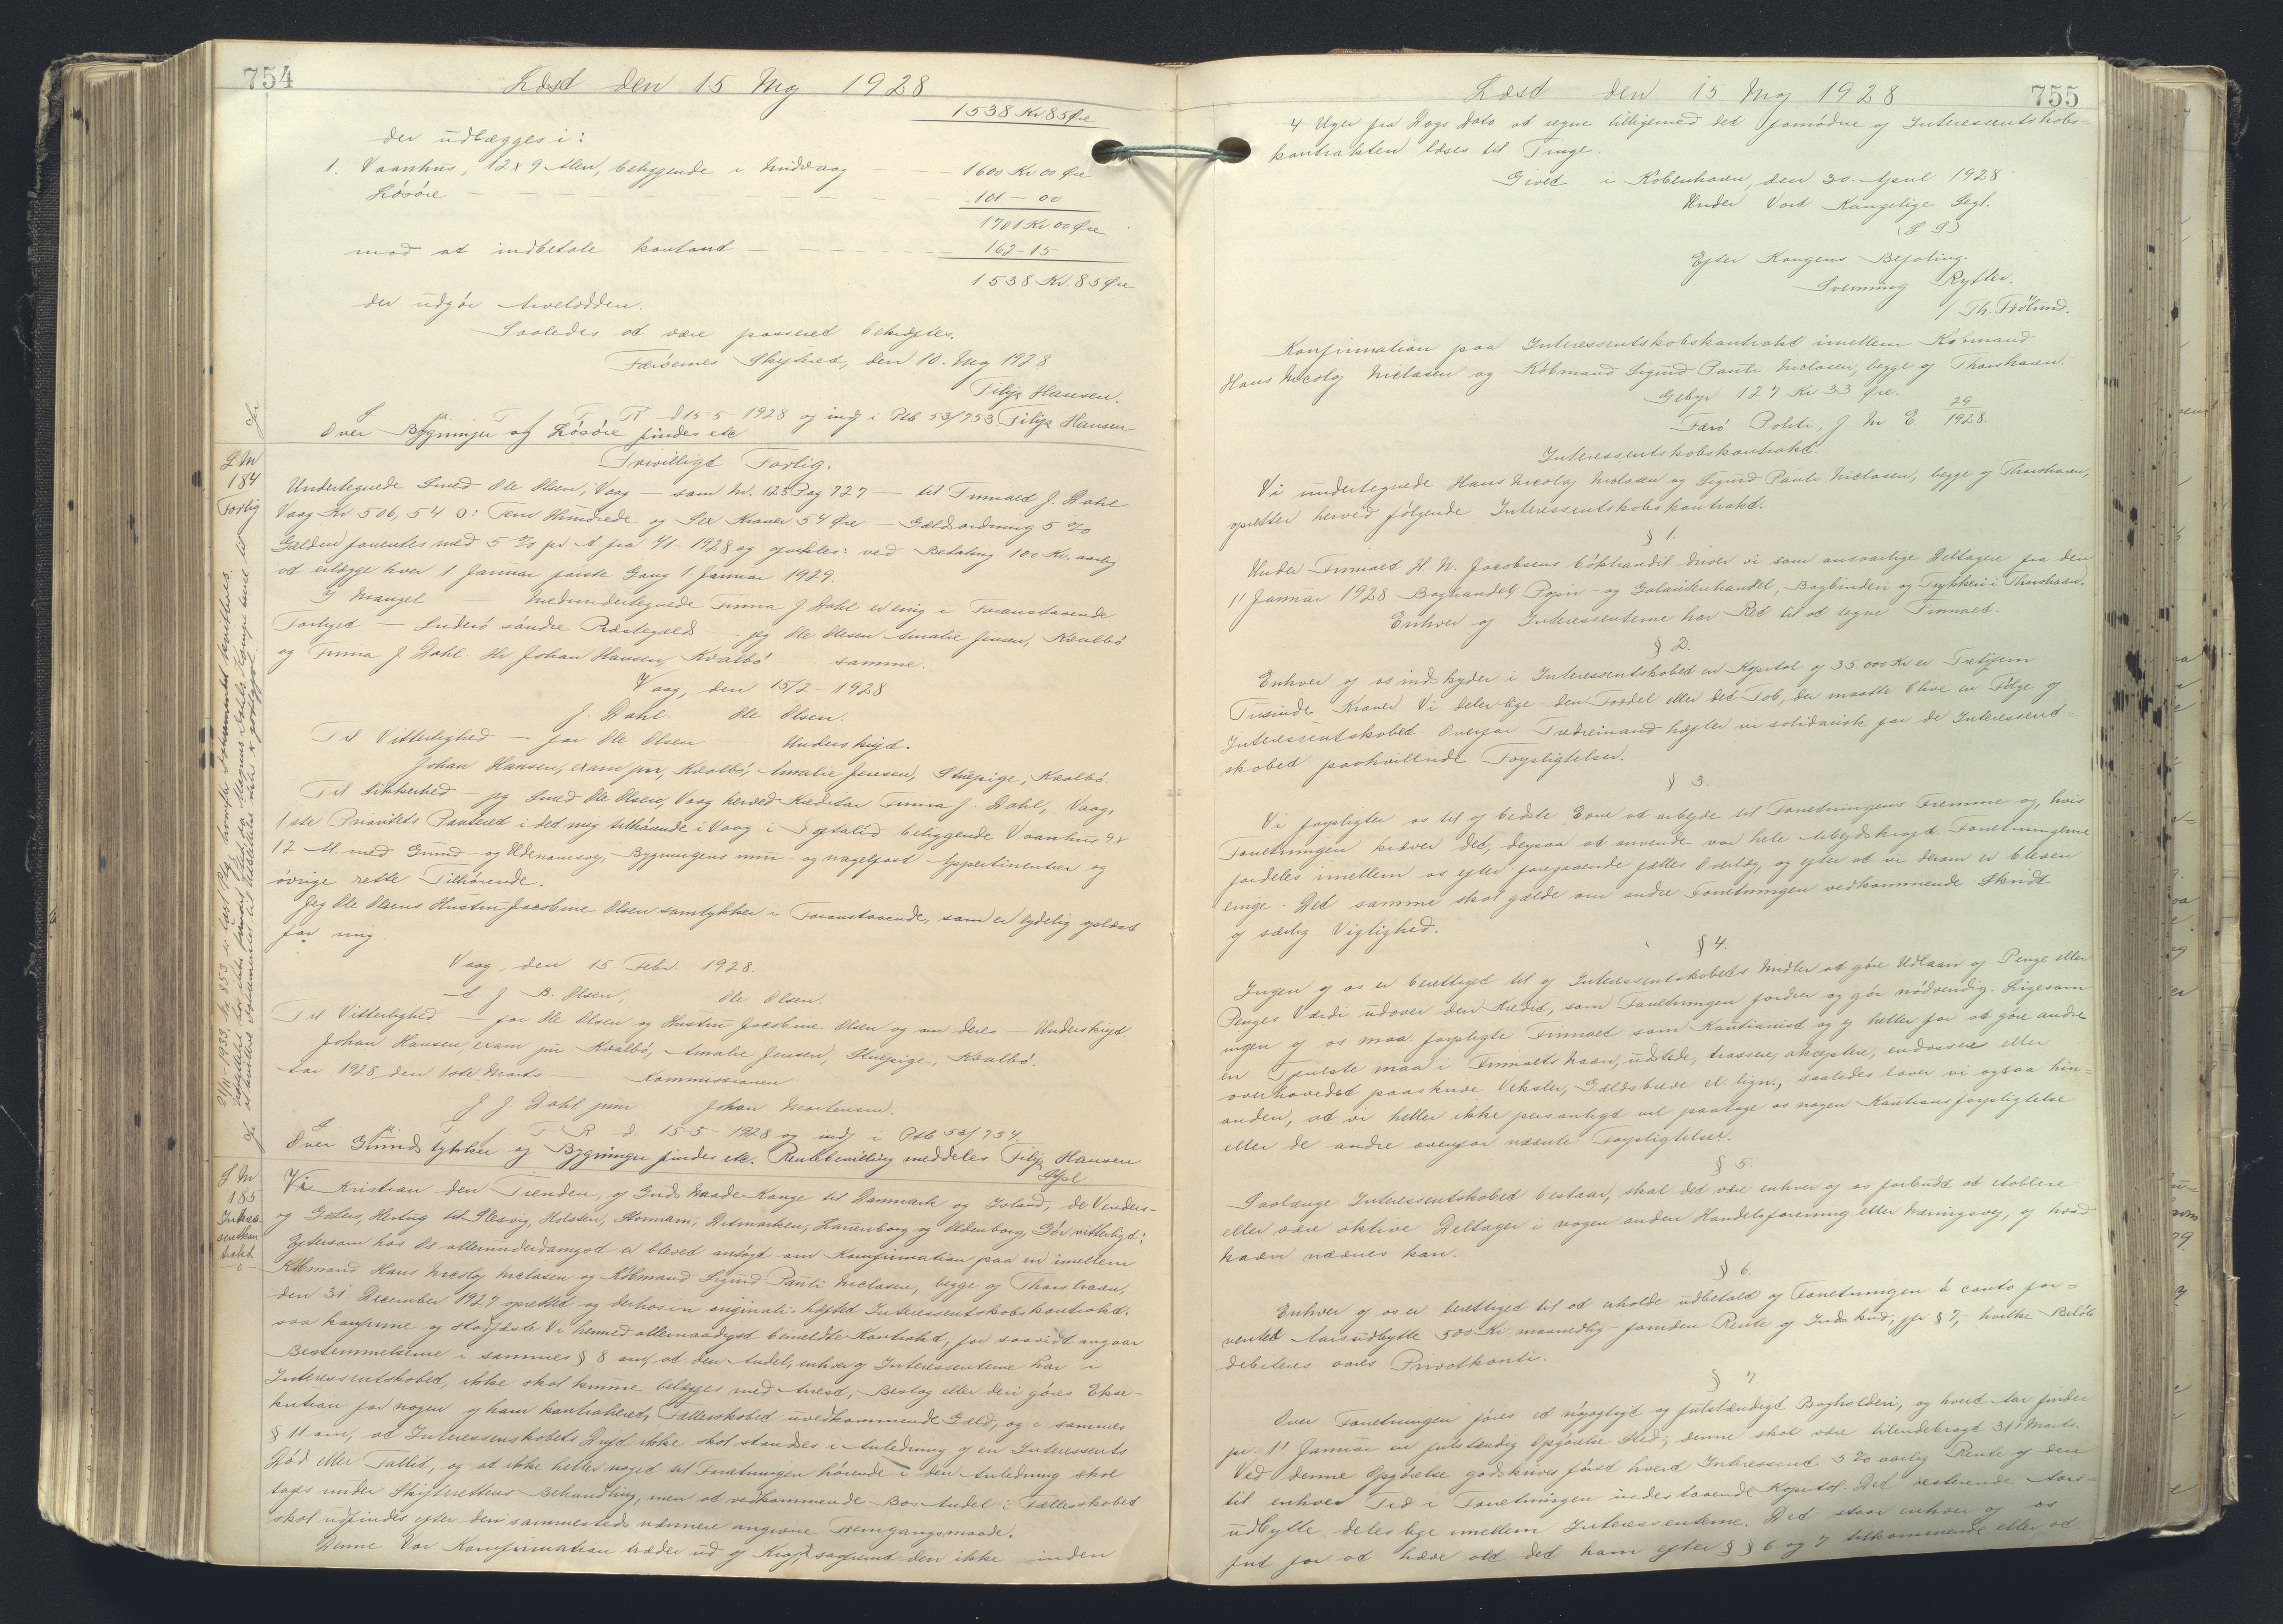 754
Læst den 15 Maj 1928
1538 Kr 85 Øre
der udlægges i:
1. Vaanhus, 12 x 9 Alen, beliggende i Midvaag — — 1600 Kr 00 Øre
Løsøre — — — — — — — 101 – 00
1701 Kr 00 Øre
mod at indbetale kontant — — — — 162 – 15
1538 Kr. 85 Øre
der udgør Arvelodden.
Saaledes at være passeret bekræftes.
Færøernes Skifteret, den 10. Maj 1928
Filip Hansen.
T R d 15 5 1928 og indf i Ptb 53/753. Filip Hansen
Over Bygninger og Løsøre findes etc
J M
184
Forlig
Frivilligt Forlig.
Undertegnede Smed Ole Olsen, Vaag — som Nr. 123 Pag 727 — til Firmaet J. Dahl
Vaag Kr 506,54 ɔ: Fem Hundrede og Sex Kroner 54 Øre — Gældsordning 5 %
Gælden forrentes med 5 % pr. A fra 1/1 - 1928 og afvikles: ved Betaling 100 Kr. aarlig
at erlægge hver 1 Januar første Gang 1. Januar 1929.
I Mangel — Medundertegnede Firma J. Dahl er enig i Foranstaaende
Forliget — Suderø søndre Præstegæld — jeg Ole Olsen Amalie Jensen, Kvalbø
og Firma J Dahl. Hr Johan Hansen, Kvalbø samme.
Vaag, den 15/2 - 1928
J. Dahl. Ole Olsen.
Til Vitterlighed — for Ole Olsen Underskrift.
Johan Hansen, exam jur, Kvalbø, Amalie Jensen, Stuepige, Kvalbø.
Til Sikkerhed — jeg Smed Ole Olsen, Vaag herved Kreditor Firma J. Dahl, Vaag,
1ste Prioritets Panteret i det mig tilhørende i Vaag i Toftalid beliggende Vaanhus 9 x
12 Al. med Grund og Udenomsvej, Bygningens mur- og nagelfast Appertinentier og
øvrige rette Tilhørende.
Jeg Ole Olsens Hustru Jacobine Olsen samtykker i Foranstaaende, som er lydelig oplæst
for mig
Vaag, den 15 Febr. 1928.
A J B. Olsen, Ole Olsen.
Til Vitterlighed — for Ole Olsen og Hustru Jacobine Olsen og om deres — Underskrift
Johan Hansen, exam jur. Kvalbø, Amalie Jensen, Stuepige, Kvalbø.
Aar 1928 den 1ste Marts — Kommissionen
J J Dahl jun Johan Mortensen.
T R d. 15-5-1928 og indf i Ptb 53/754.
Over Grundstykker og Bygninger findes etc. Rentebevilling meddeles. Filip Hansen
J M
185
Interes-
sentkon
trakt
Vi Kristian den Tiende, af Guds Naade Konge til Danmark og Island, de Venders-
og Goters, Hertug til Slesvig, Holsten, Stormarn, Ditmarsken, Lauenborg og Oldenborg, Gør vitterligt:
Eftersom hos Os allerunderdanigst er blevet ansøgt om Konfirmation paa en imellem
Købmand Hans Nicolaj Niclasen og Købmand Sigurd Pauli Niclasen, begge af Thorshavn,
den 31. December 1927 oprettet og derhos in originali hæftet Interessentskabskontrakt.
saa konfirme og stadfæste Vi hermed allernaadigst bemeldte Kontrakt, for saavidt angaar
Bestemmelserne i sammes § 8 om, at den Andel, enhver af Interessenterne har i
Interessentskabet, ikke skal kunne belægges med Arrest, Beslag eller deri gøres Ekse-
kution for nogen af ham kontraheret, Fællesskabet uvedkommende Gæld, og i sammes
§ 11 om, at Interessenskabets Drift ikke skal standses i Anledning af en Interessents
Død eller Fallit, og at ikke heller noget til Forretningen hørende i den Anledning skal
tages under Skifterettens Behandling, men at vedkommende Bos Andel i Fællesskabet
skal udfindes efter den sammesteds nærmere angivne Fremgangsmaade.
Denne Vor Konfirmation træder ud af Kraft saafremt den ikke inden
Læst den 15 Maj 1928
755
4 Uger fra Dags Dato at regne tilligemed det fornødne af Interessentskabs-
kontrakten læses til Tinge.
Givet i København, den 30. April 1928
Under Vort Kongelige Segl.
(L S)
Efter Kongens Befaling.
Svenning Rytter.
/ Th. Frølund.
Konfirmation paa Interessentskabskontrakt imellem Købmand
Hans Nicolaj Niclasen og Købmand Sigurd Pauli Niclasen, begge af Thorshavn.
Gebyr 127 Kr 33 Øre.
Færø Politi, J. Nr E. 29/1928.
Interessentskabskontrakt.
Vi undertegnede Hans Nicolaj Niclasen og Sigurd Pauli Niclasen, begge af Thorshavn,
opretter herved følgende Interessentskabskontrakt.
§ 1.
Under Firmaet H. N. Jacobsens bókhandil driver vi som ansvarlige Deltagere fra den
1' Januar 1928 Boghandel, Papir- og Galanterihandel, Bogbinderi og Trykkeri i Thorshavn.
Enhver af Interessenterne har Ret til at tegne Firmaet.
§ 2.
Enhver af os indskyder i Interessentskabet en Kapital af 35.000 Kr er Tretifem
Tusinde Kroner Vi deler lige den Fordel eller det Tab, der maatte blive en Følge af
Interessentskabet Overfor Tredjemand hæfter vi solidarisk for de Interessent-
skabet paahvilende Forpligtelser.
§ 3.
Vi forpligter os til af bedste Evne at arbejde til Forretningens Fremme og, hvis
Forretningen kræver det, dergaa at anvende vor hele Arbejdskraft. Forretningerne
fordeles imellem os efter foregaaende fælles Overlæg, og efter at vi derom er bleven
enige. Det samme skal gælde om andre Forretningen vedkommende Skridt
af særlig Vigtighed.
§ 4.
Ingen af os er berettiget til af Interessentskabets Midler at gøre Udlaan af Penge eller
Penges Værdi udover den Kredit, som Forretningen fordrer og gør nødvendig. Ligesom
ingen af os maa forpligte Firmaet som Kautionist og ej heller for at gøre andre
en Tjeneste maa i Firmaets Navn, udstede, trassere, akceptere, endossere eller
overhovedet paaskrive Veksler, Gældsbreve el. lign., saaledes lover vi ogsaa hin-
anden, at vi heller ikke personligt vil paatage os nogen Kautionsforpligtelse
eller de andre ovenfor nævnte Forpligtelser.
§ 5.
Saalænge Interessentskabet bestaar, skal det være enhver af os forbudt at etablere
eller være aktive Deltager i nogen anden Handelsforening eller Næringsvej, af hvad
Navn nævnes kan.
§ 6.
Enhver af os er berettiget til at erholde udbetalt af Forretningen à conto for-
ventet Aarsudbytte 500 Kr maanedlig foruden Rente af Indskud, jfr § 7, hvilke Beløb
debiteres vores Privatkonti.
§ 7.
Over Forretningen føres et nøjagtigt og fuldstændigt Bogholderi, og hvert Aar finder
pr. 1' Januar en fuldstændig Opgørelse Sted; denne skal være tilendebragt 31' Marts.
Ved denne Opgørelse godskrives først hvert Interessent 5 % aarlig Rente af den
til enhver Tid i Forretningen indestaaende Kapital. Det resterende Aars-
udbytte deles lige imellem Interessenterne. Det staar enhver af os
frit for at hæve alt det ham efter §§ 6 og 7 tilkommende eller at